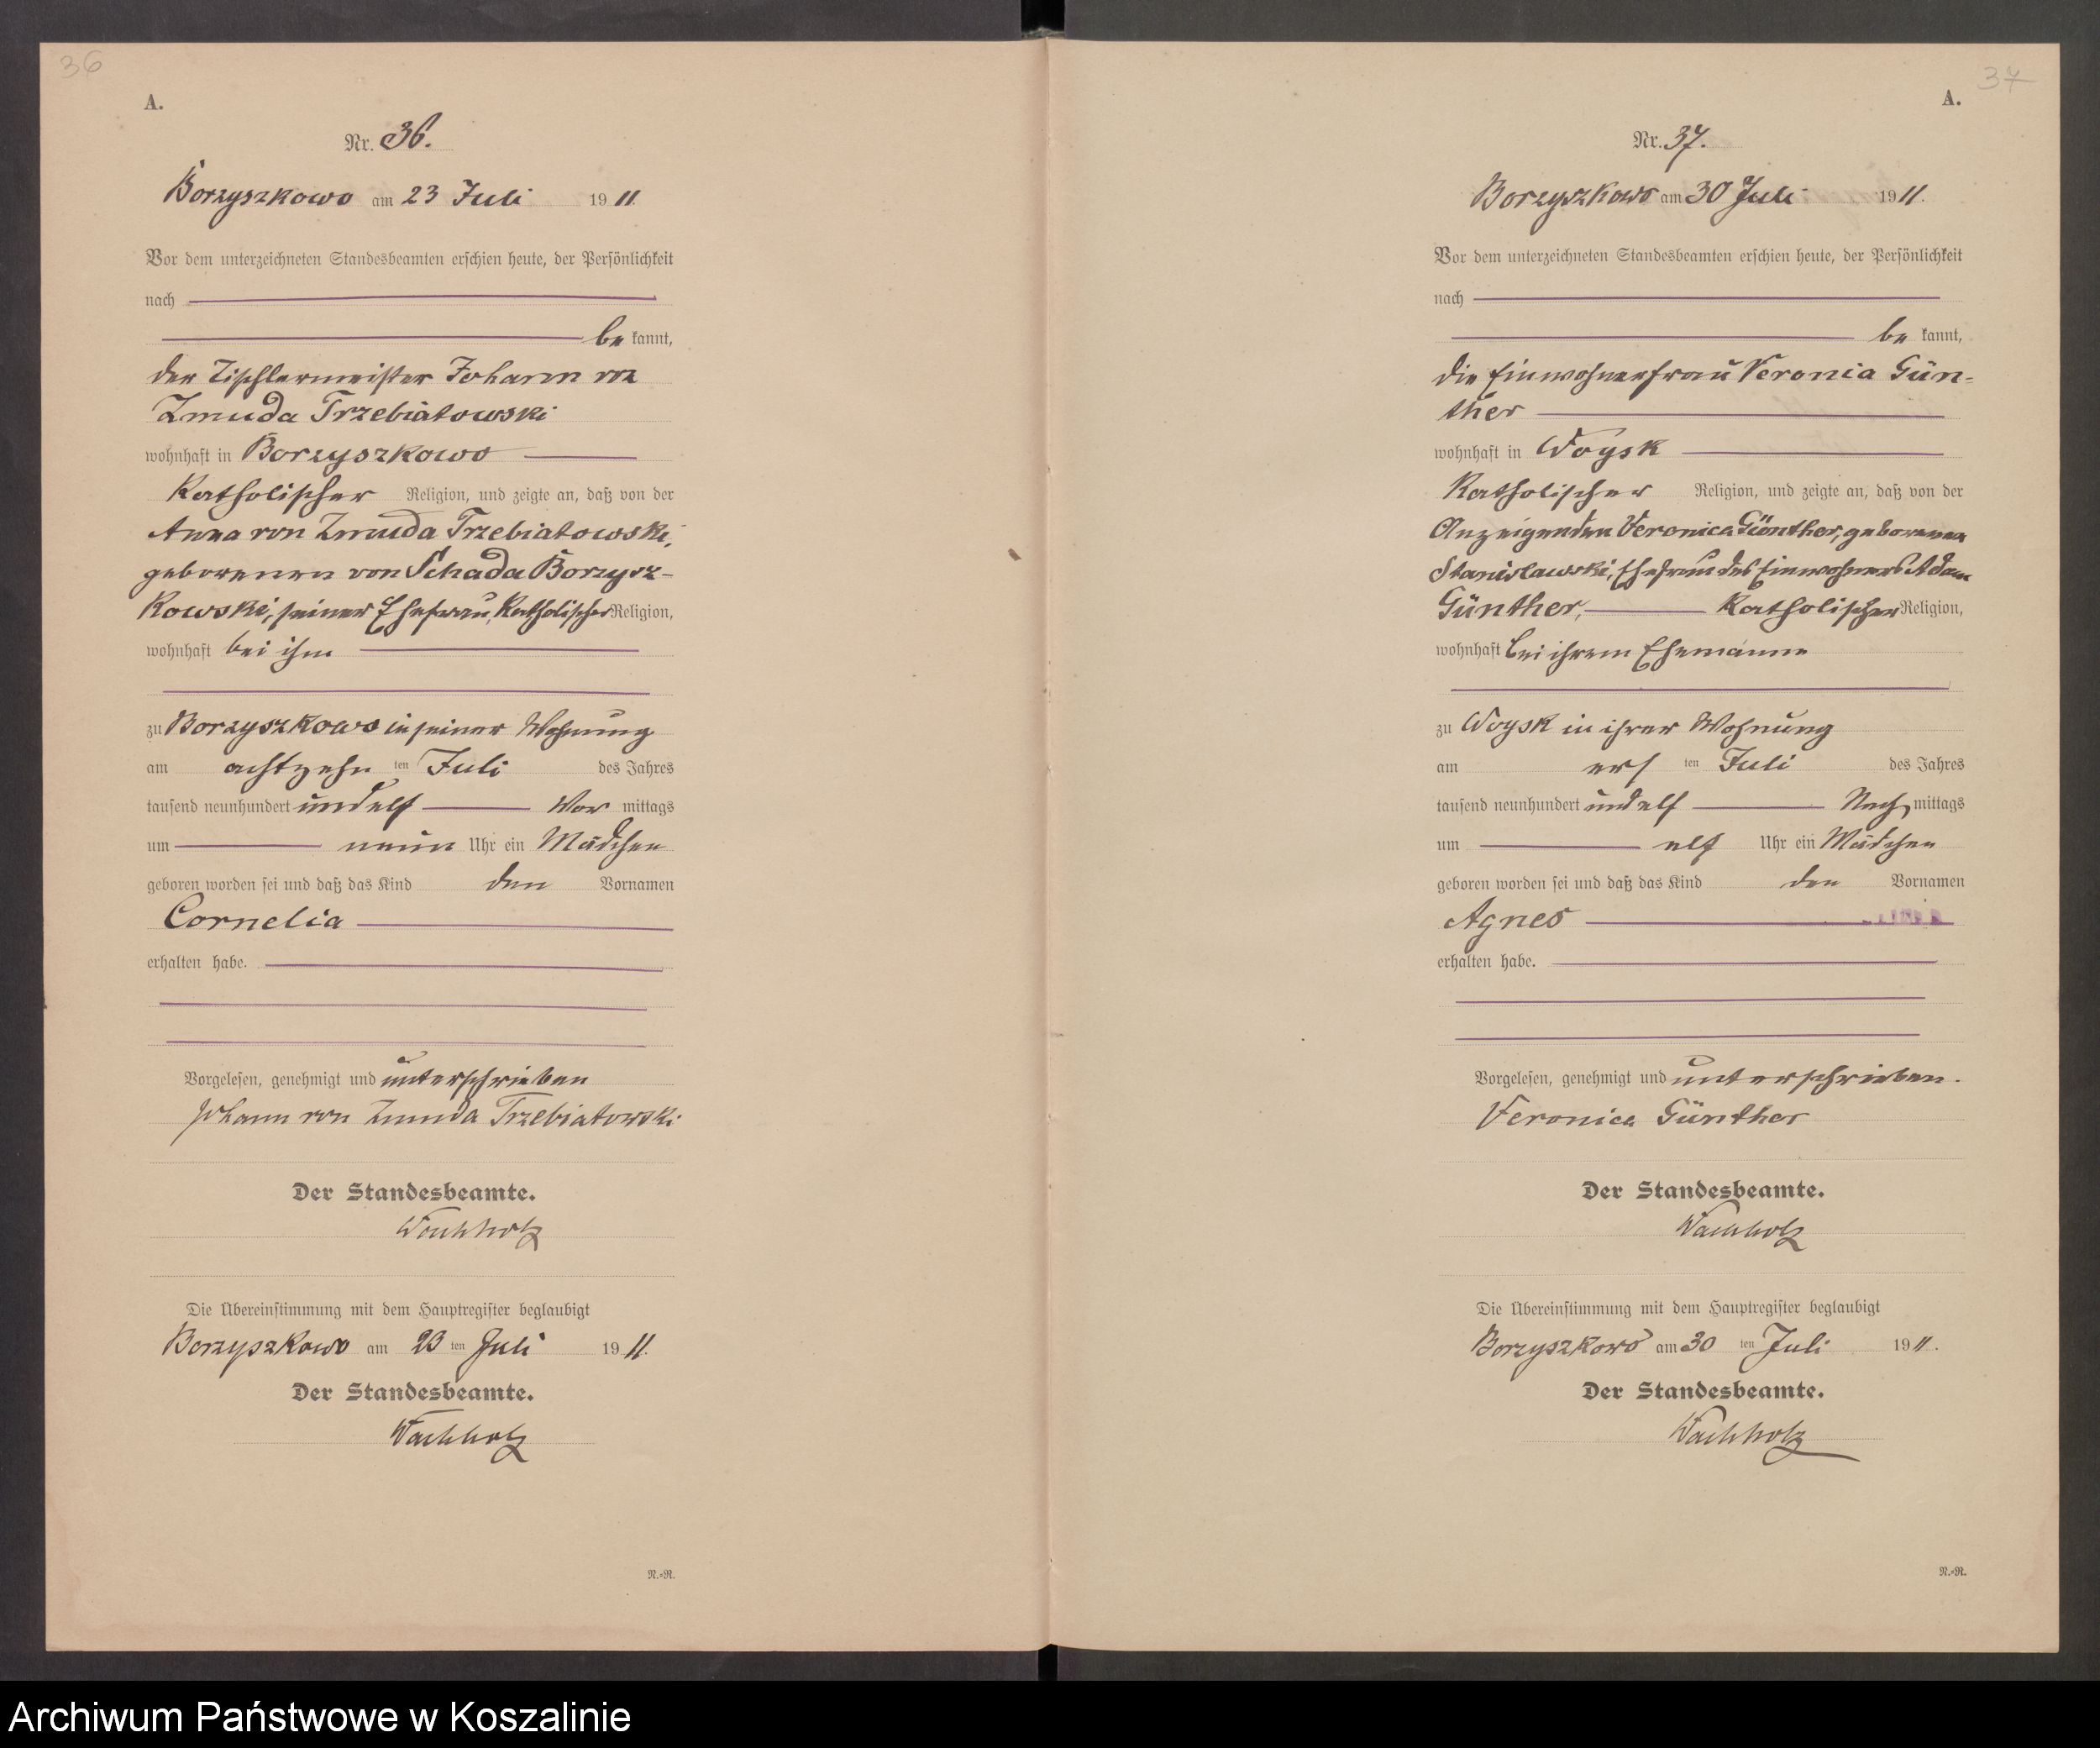 36
A.
Nr. 36.
Borzyszkowo am 23 Juli 1911.
Vor dem unterzeichneten Standesbeamten erschien heute, der Persönlichkeit
nach
be kannt,
der Tischlermeister Johann von
Zmuda Trzebiatowski
wohnhaft in Borzyszkowo
Katholischer Religion, und zeigte an, daß von der
Anna von Zmuda Trzebiatowski,
geborenen von Schada Borzysz-
kowski, seiner Ehefrau, Katholischer Religion,
wohnhaft bei ihm
zu Borzyszkowo in seiner Wohnung
am achtzehn ten Juli des Jahres
tausend neunhundert und elf Vor mittags
um neun Uhr ein Mädchen
geboren worden sei und daß das Kind den Vornamen
Cornelia
erhalten habe.
Vorgelesen, genehmigt und unterschrieben
Johann von Zmuda Trzebiatowski
Der Standesbeamte.
Wachholz
Die Übereinstimmung mit dem Hauptregister beglaubigt
Borzyszkowo am 23 ten Juli 1911.
Der Standesbeamte.
Wachholz
N.=R.
37
A.
Nr. 37.
Borzyszkowo am 30 Juli 1911.
Vor dem unterzeichneten Standesbeamten erschien heute, der Persönlichkeit
nach
be kannt,
die Einwohnerfrau Veronica Gün-
ther
wohnhaft in Woysk
Katholischer Religion, und zeigte an, daß von der
Anzeigenden Veronica Günther, geborenen
Stanislawski, Ehefrau des Einwohners Adam
Günther, Katholischer Religion,
wohnhaft bei ihrem Ehemanne
zu Woysk in ihrer Wohnung
am ers ten Juli des Jahres
tausend neunhundert und elf Nach mittags
um elf Uhr ein Mädchen
geboren worden sei und daß das Kind den Vornamen
Agnes
erhalten habe.
Vorgelesen, genehmigt und unterschrieben.
Veronica Günther
Der Standesbeamte.
Wachholz
Die Übereinstimmung mit dem Hauptregister beglaubigt
Borzyszkowo am 30 ten Juli 1911.
Der Standesbeamte.
Wachholz
N.=R.
Archiwum Państwowe w Koszalinie